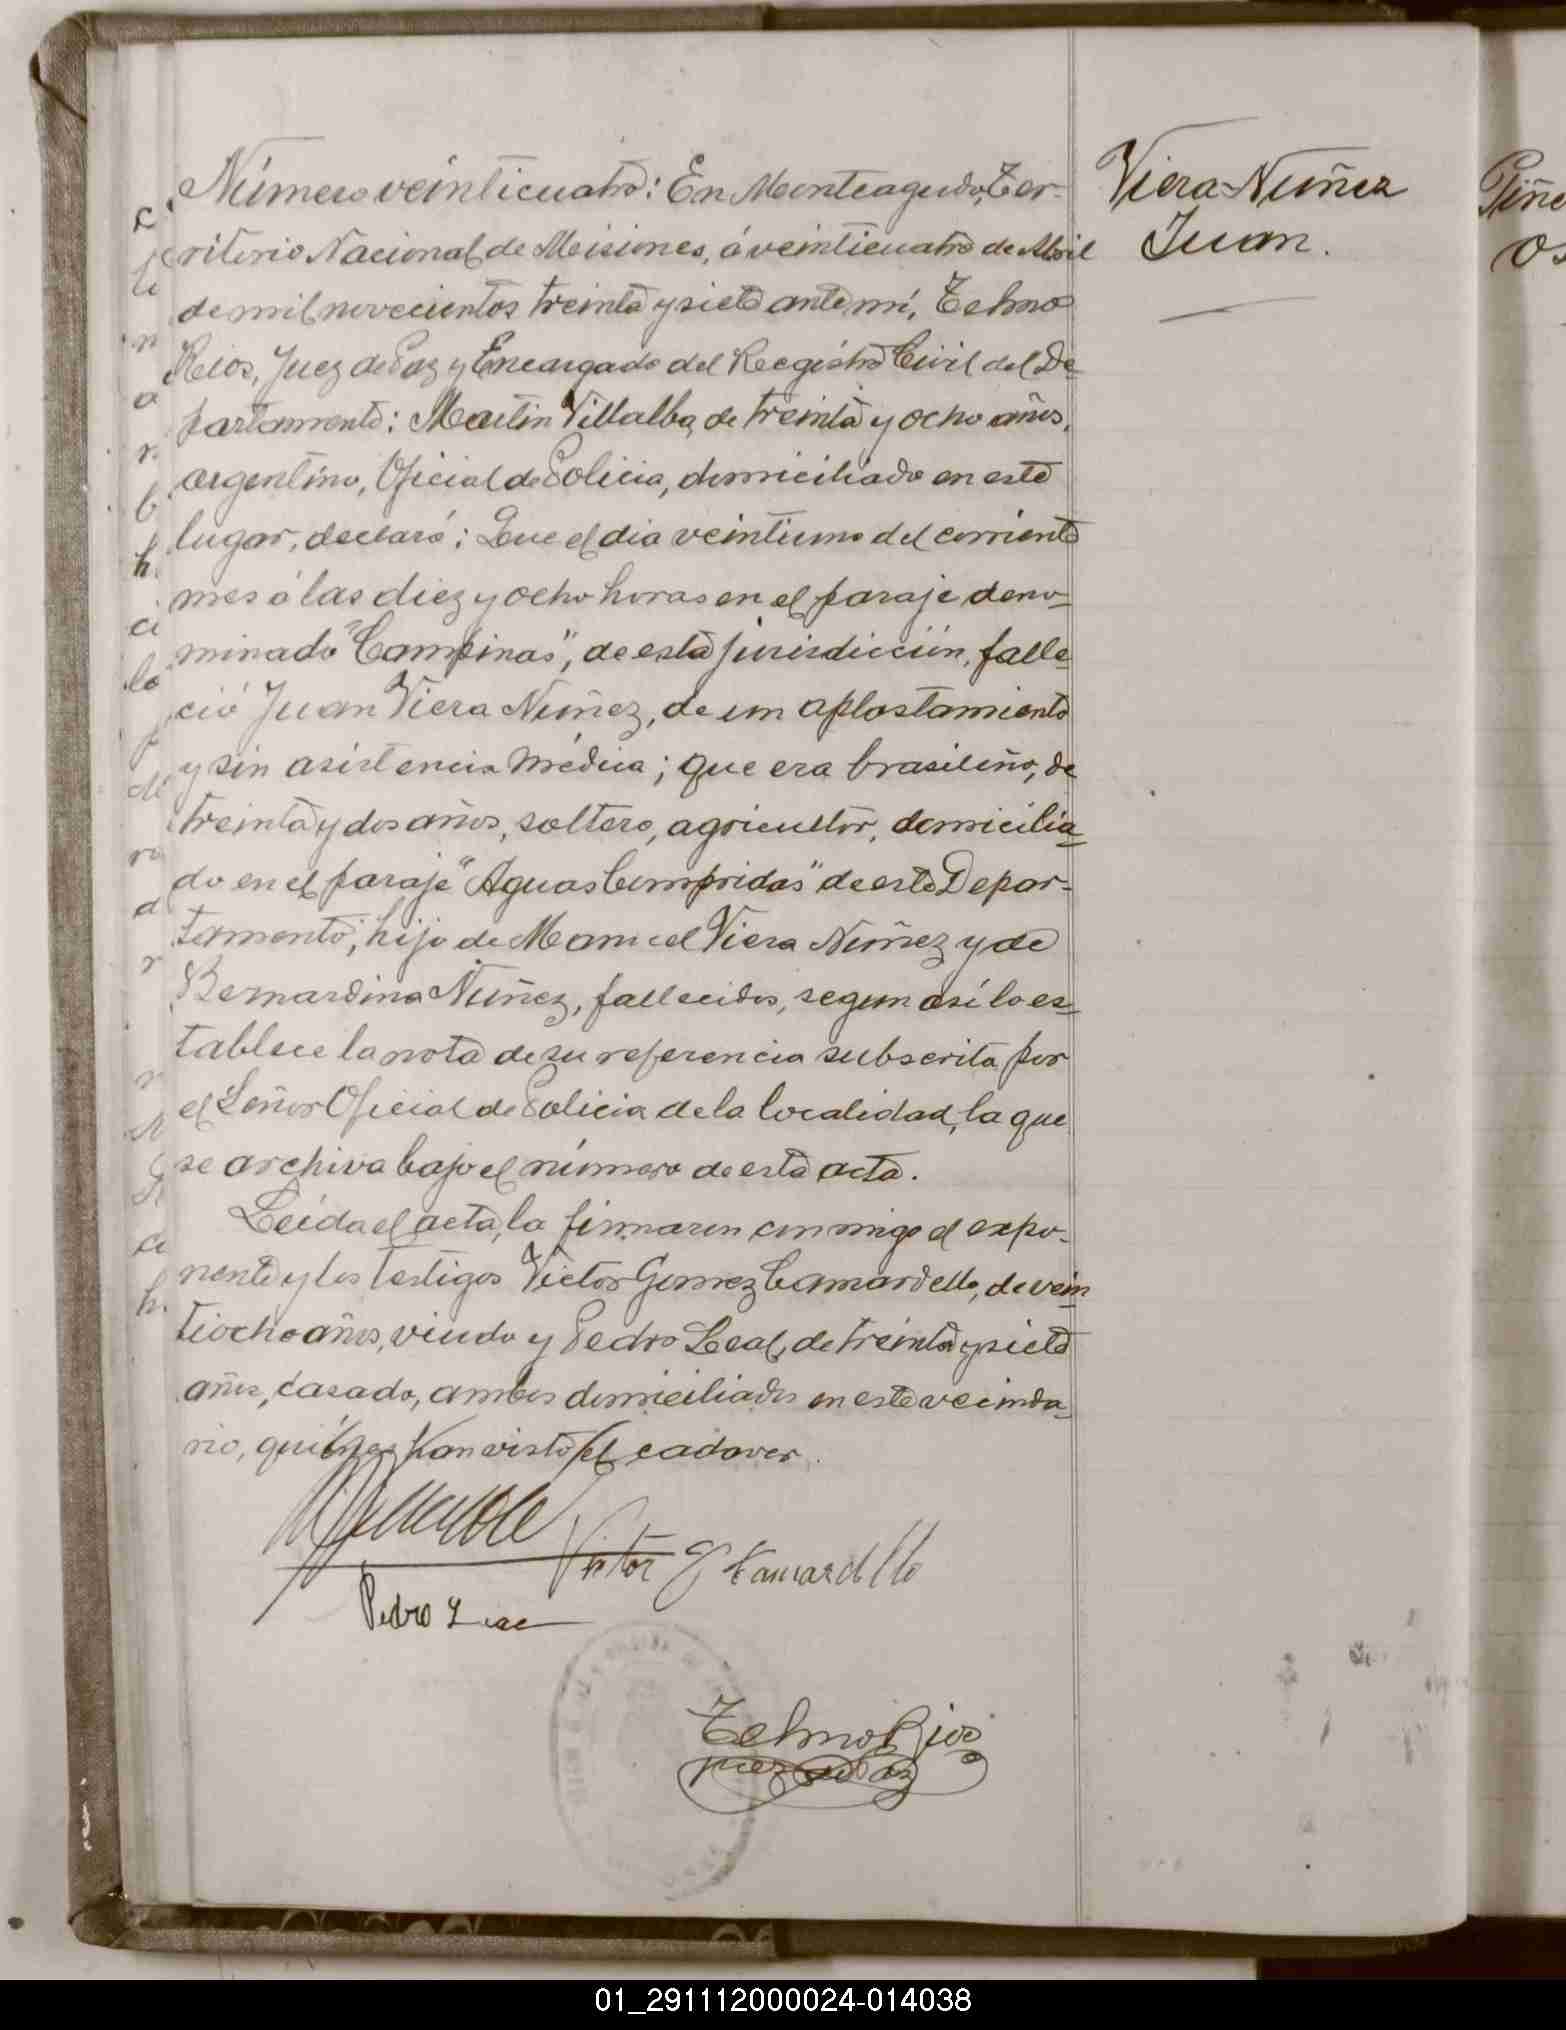 Número veinticuatro: En Monteagudo, Ter-
ritorio Nacional de Misiones, á veinticuatro de Abril
de mil novecientos treinta y siete ante mí, Telmo
Rios, Juez de Paz y Encargado del Registro Civil del De-
partamento: Martin Villalba, de treinta y ocho años,
argentino, Oficial de Policia, domiciliado en este
lugar, declaró: Que el dia veintiuno del corriente
mes á las diez y ocho horas en el paraje deno-
minado "Campinas", de esta jurisdicción, falle-
ció Juan Viera Nuñez, de un aplastamiento
y sin asistencia médica; que era brasileño, de
treinta y dos años, soltero, agricultor, domicilia-
do en el paraje "Aguas Compridas" de este Depar-
tamento, hijo de Manuel Viera Nuñez y de
Bernardina Nuñez, fallecidos, segun así lo es-
tablece la nota de su referencia subscrita por
el Señor Oficial de Policia de la localidad, la que
se archiva bajo el número de esta acta.
Leída el acta, la firmaron conmigo el expo-
nente y los testigos Victor Gomez Camardello, de vein-
tiocho años, viudo y Pedro Leal, de treinta y siete
años, casado, ambos domiciliados en este vecinda-
rio, quiénes han visto el cadaver.
Victor G Camardello
Pedro Leal
Telmo Rios
Juez de Paz
Viera Nuñez
Juan.
01_291112000024-014038